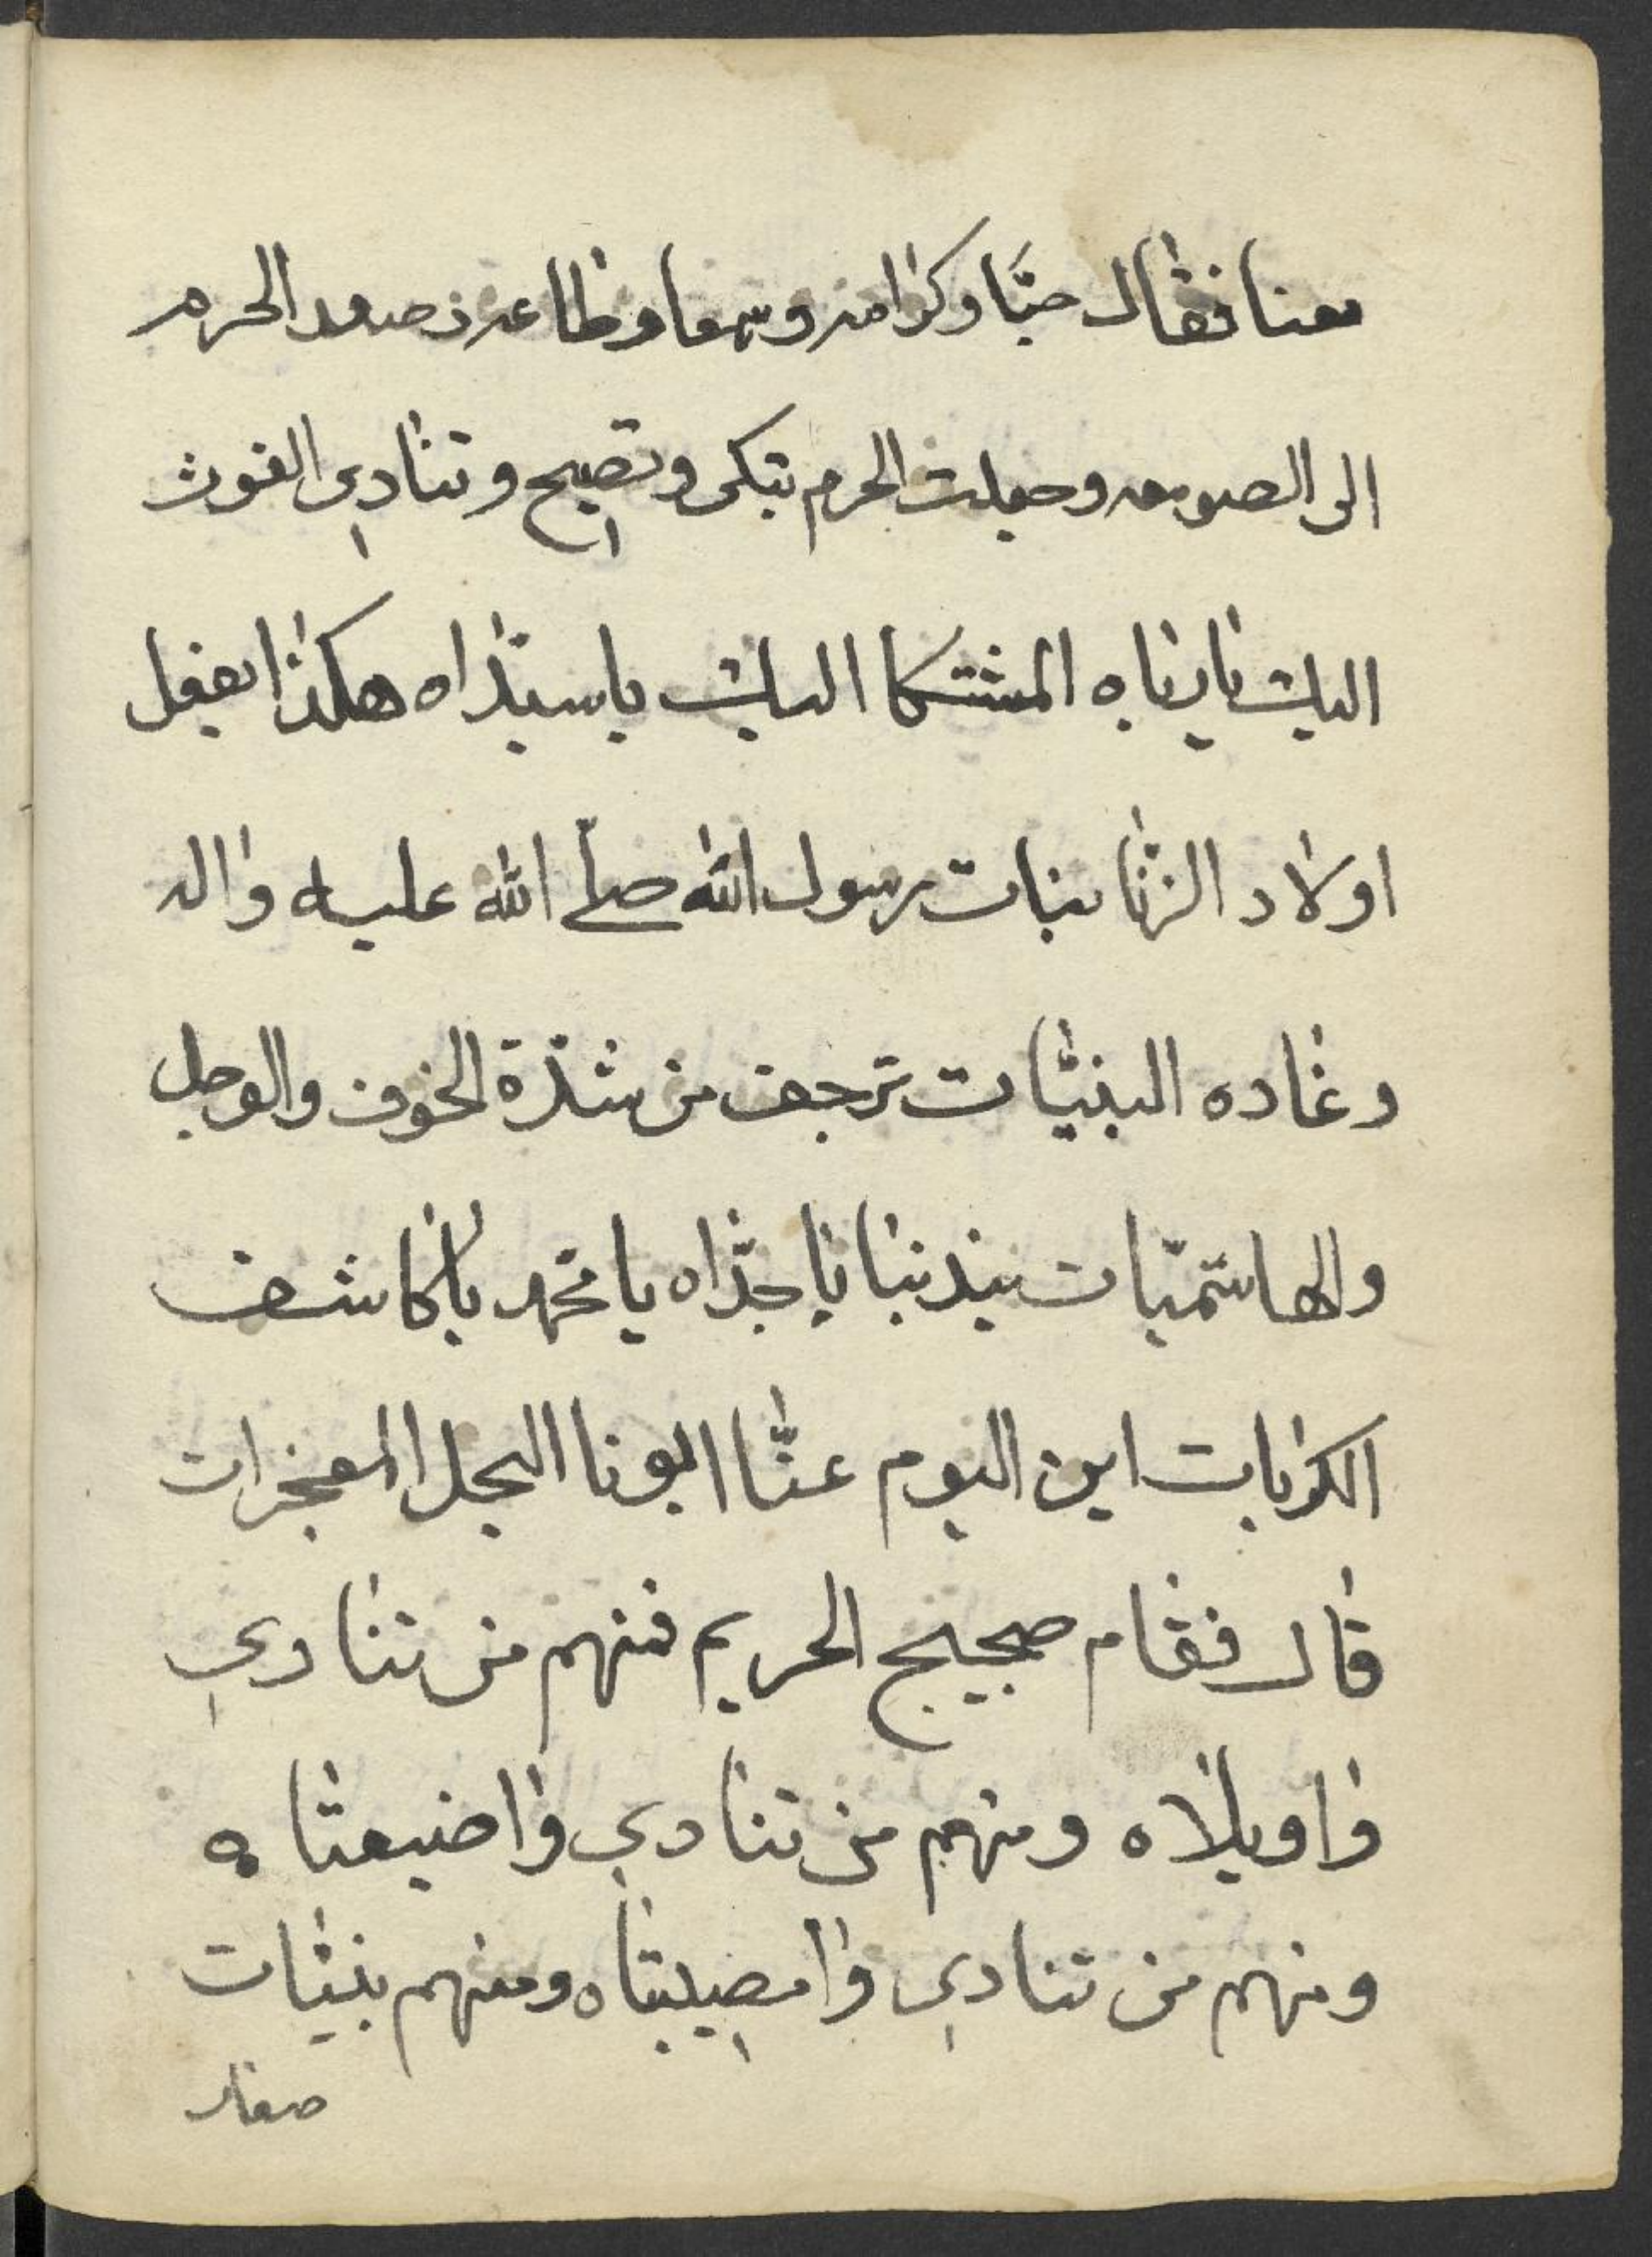 معنا فقال حبّا وكرامه وسمعا وطاعه فصعد الحرم
الى الصومعه وجعلت الحرم تبكى وتصيح وتنادي الغوث
اليك يا رباه المشتكا اليك يا سيّداه هكذا يفعل
اولاد الزنا ببنات رسول الله صلّى الله عليه واله
وغاده البنيّات ترجف من شدّة الخوف والوجل
والهاشميّات يندبنا يا جدّاه يا محمد يا كاشف
الكربات اين اليوم عنّا ابونا البجل المعجزات
قال فقام ضجيج الحريم فمنهم من تنادي
واويلاه ومنهم من تنادي واضيعتاه
ومنهم من تنادي وامصيبتاه ومنهم بنيّات
صغار